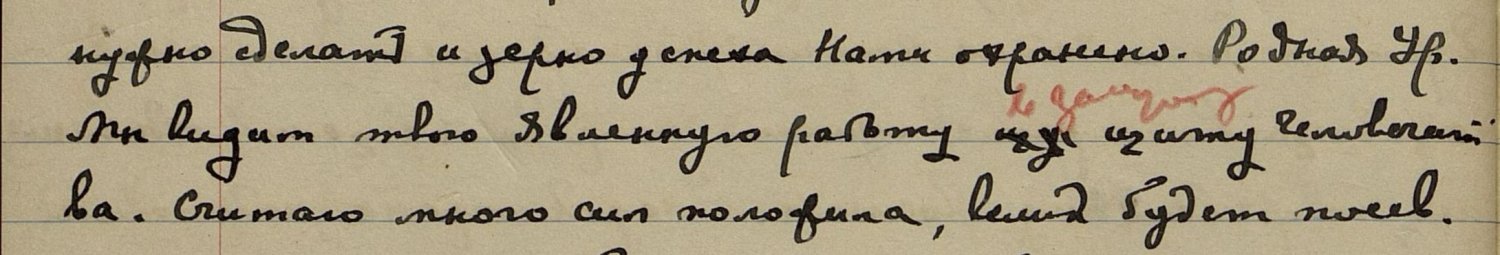 нужно сделать и зерно успеха Нами охранено. Родная Ур.
в защиту
Мы видим твою явленную работу щиту человечест
ва. Считаю много сил положила, велик будет посев.